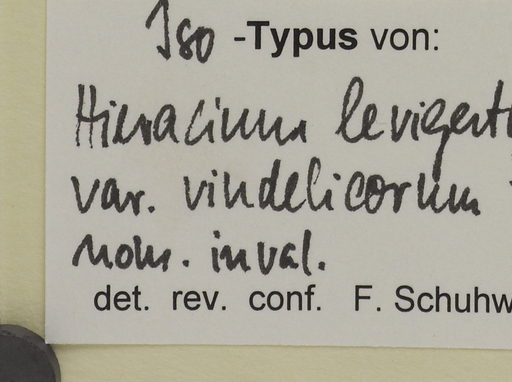 Iso -Typus von:
Hieracium levigat
var. vindelicorum
nom. inval.
det. rev. conf. F. Schuhw